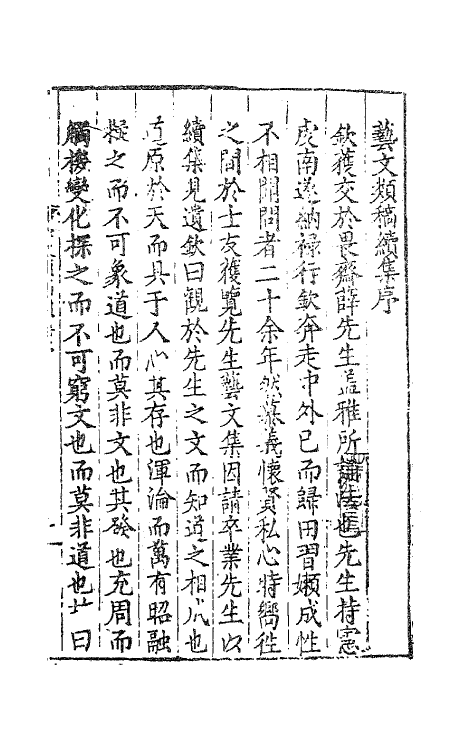 藝文類稿續集序
欽獲交於畏齋薛先生盖雅所講法也先生持憲
虔南遂納祿行欽奔走中外已而歸田習嬾成性
不相聞問者二十余年然慕義懷賢私心特嚮徃
之間於士友獲覽先生藝文集因請卒業先生以
續集見遺欽曰觀於先生之文而知道之相爲也
道原於天而具于人心其存也渾淪而萬有昭融
擬之而不可象道也而莫非文也其發也充周而
觸機變化探之而不可窮文也而莫非道也故曰